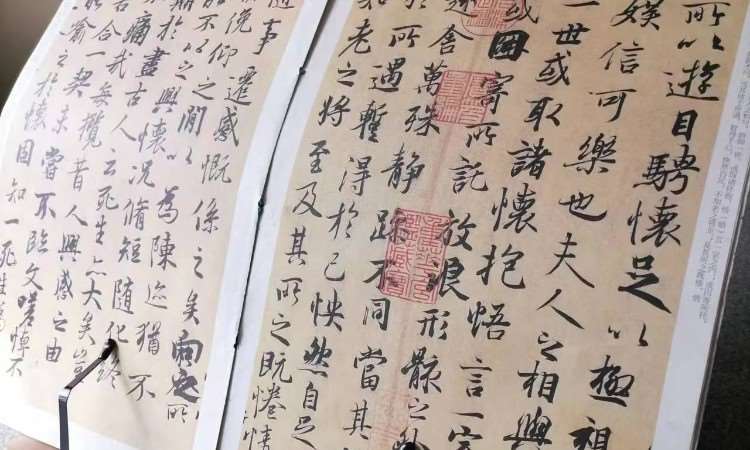 所以遊目騁懷足以極視
娛信可樂也夫人之相與
一世或取諸懷抱悟言一室
或因寄所託放浪形骸之外
舍萬殊静躁不同當其
於所遇暫得於己怏然自足
知老之將至及其所之既惓情
事遷感慨係之矣向之所
俛仰之閒以為陳迹猶不
能不以之興懷況脩短隨化終
於盡古人云死生亦大矣豈
痛哉每攬昔人興感之由
若合一契未嘗不臨文嗟悼不
喻之於懷固知一死生為